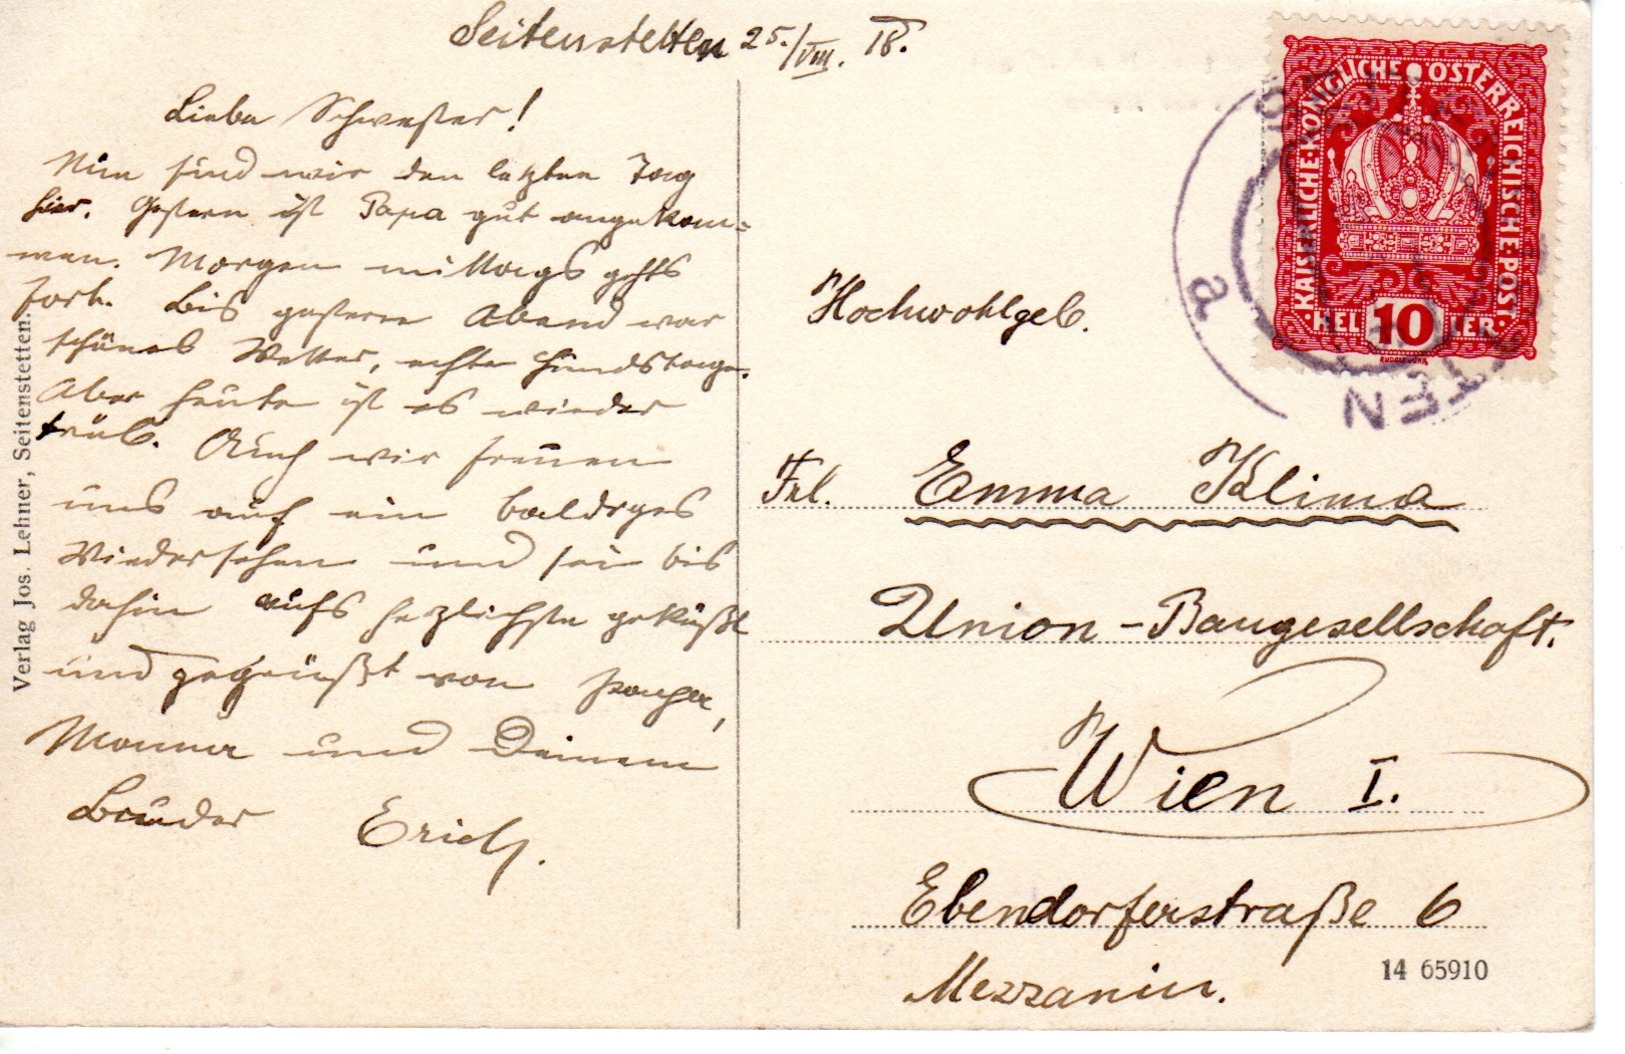 Seitenstetten 25./VIII. 18.
Liebe Schwester!
Nun sind wir den letzten Tag
hier. Gestern ist Papa gut angekom-
men. Morgen mittags gehts
fort. Bis gestern Abend war
schönes Wetter, echte Hundstage.
Aber heute ist es wieder
trüb. Auch wir freuen
uns auf ein baldiges
Wiedersehen und sei bis
dahin aufs herzlichste geküßt
und gegrüßt von Papa,
Mama und Deinem
Bruder Erich.
Verlag Jos. Lehner, Seitenstetten.
KAISERLICHE KÖNIGLICHE ÖSTERREICHISCHE POST
HEL 10 LER
a
TEN
Hochwohlgeb.
Frl. Emma Klima
Union-Baugesellschaft.
Wien I.
Ebendorferstraße 6
Mezzanin.
14 65910